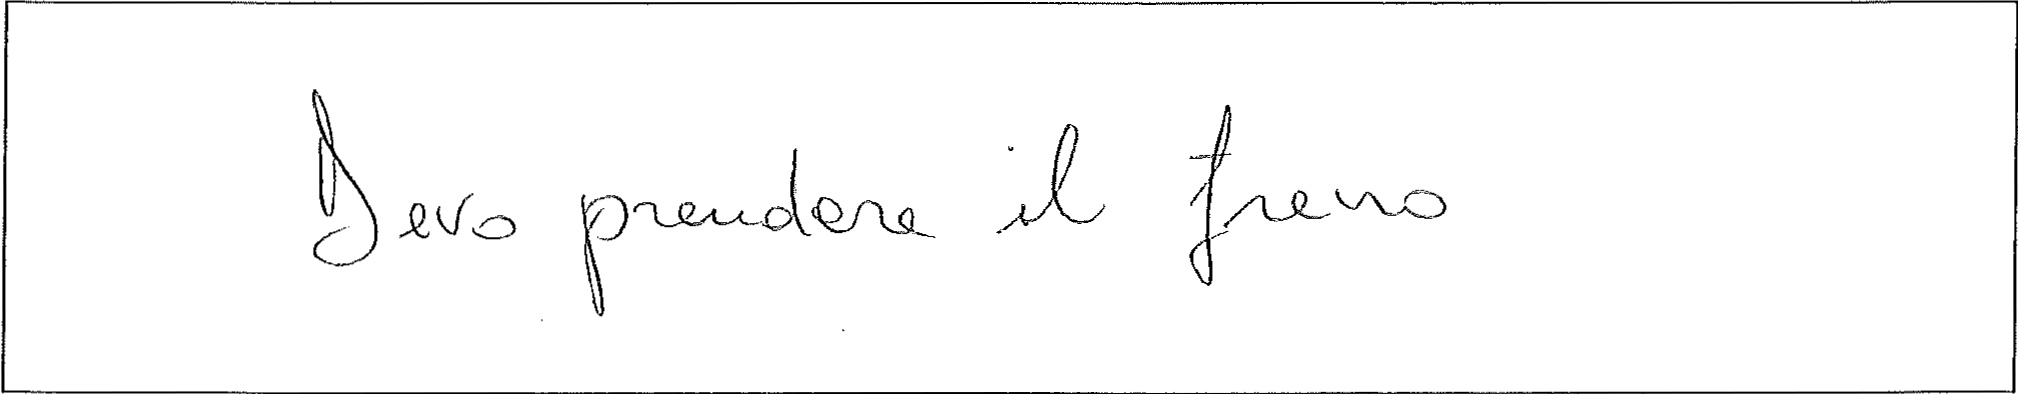 Devo prendere il treno